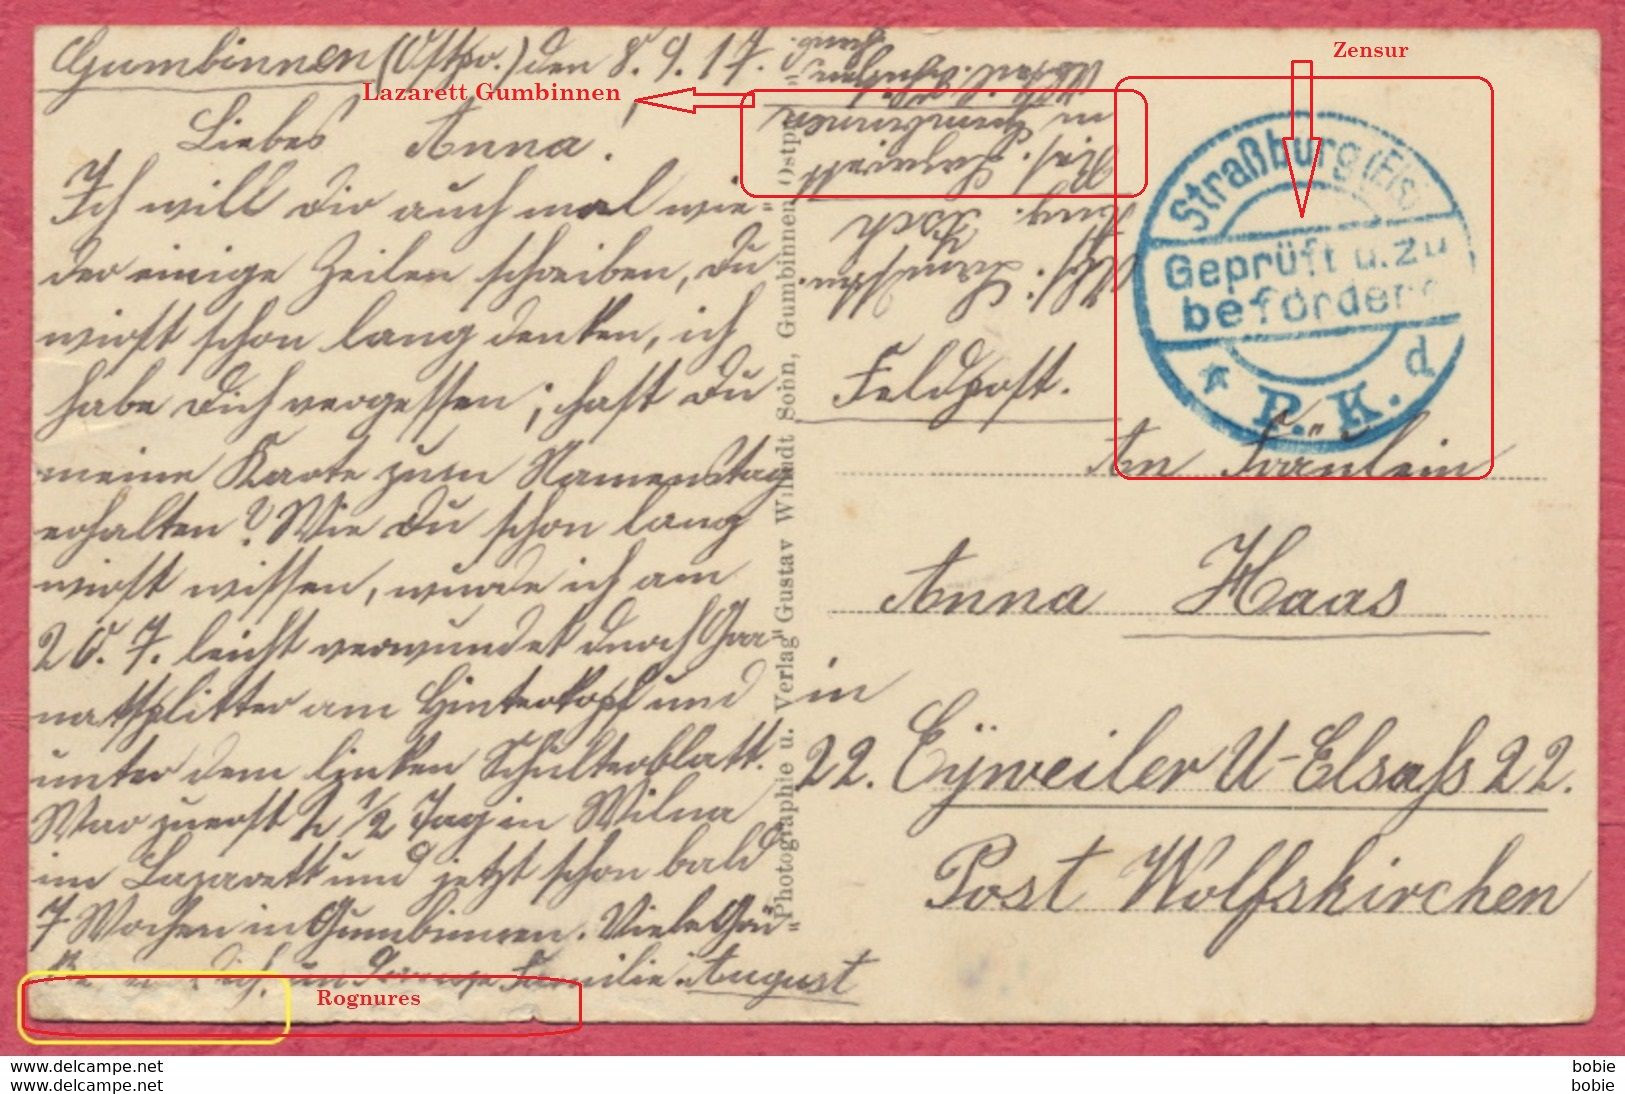 Gumbinnen (Ostpr.) den 8. 9. 17.
Liebes Anna!
Ich will dir auch mal wie-
der einige Zeilen schreiben, du
wirst schon lang denken, ich
habe dich vergessen; hast du
meine Karte zum Namenstag
erhalten? Wie du schon lang
wirst wissen, wurde ich am
20. 7. leicht verwundet durch Gra-
natsplitter am Hinterkopf und
unter dem linken Schulterblatt.
War zuerst 2 1/2 Tag in Wilna
im Lazarett und jetzt schon bald
7 Wochen in Gumbinnen. Viele Grü-
dich, Familie August
Lazarett Gumbinnen
Abs.: Landstm.
Aug.
Res. Lazarett
in Gumbinnen
Feldpost.
An Fräulein
Anna Haas
in
22. Eyweiler U-Elsass 22.
Post Wolfskirchen
Photographie u. Verlag Gustav Willndt Sohn, Gumbinnen Ostpr.
Zensur
Straßburg (Els)
Geprüft u. zu
befördern
* P. K. d
Rognures
www.delcampe.net
www.delcampe.net
bobie
bobie